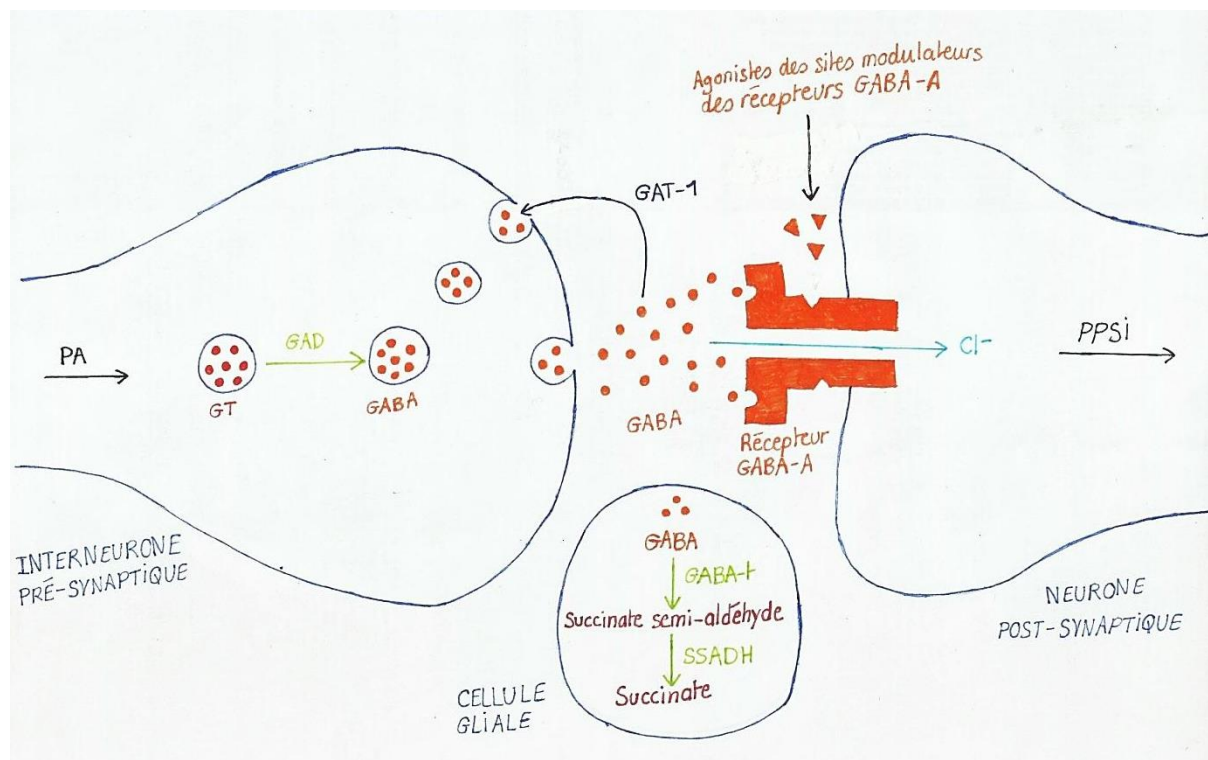 Agonistes des sites modulateurs
des récepteurs GABA-A
GAT-1
PA
GAD
GT
GABA
GABA
Cl-
PPSi
Récepteur
GABA-A
INTERNEURONE
PRÉ-SYNAPTIQUE
GABA
GABA-t
Succinate semi-aldéhyde
SSADH
Succinate
CELLULE
GLIALE
NEURONE
POST-SYNAPTIQUE